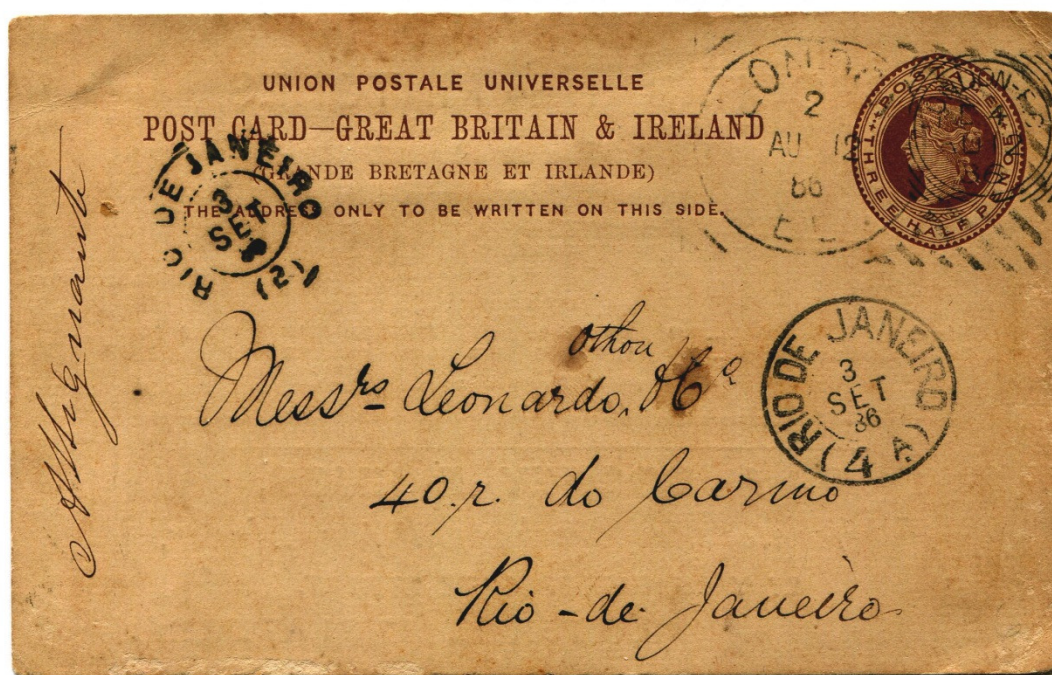 UNION POSTALE UNIVERSELLE
POST CARD—GREAT BRITAIN & IRELAND
(GRANDE BRETAGNE ET IRLANDE)
THE ADDRESS ONLY TO BE WRITTEN ON THIS SIDE.
LONDON
2
AU 12
86
POSTAGE
THREE HALF PENCE
RIO DE JANEIRO
3
SET
(2)
RIO DE JANEIRO
3
SET
86
(4 A)
Othon
Messrs Leonardo, & Cª
40. r. do Carmo
Rio-de-Janeiro